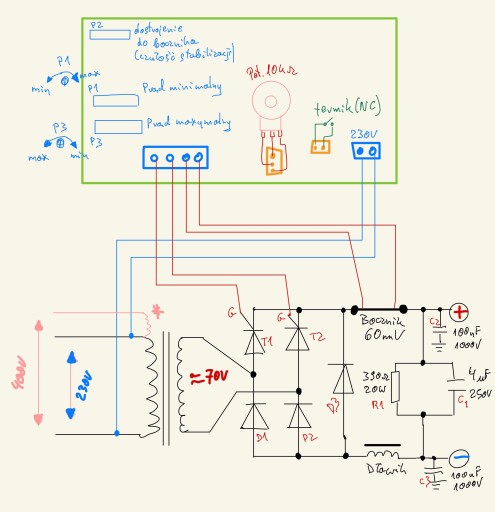 P2
dostrojenie
do bocznika
(czułość stabilizacji)
P1
max
min
P1
Prąd minimalny
P3
max
min
Prąd maxymalny
P3
Pot. 10kΩ
termik (NC)
230V
G
G
T1
T2
Bocznik
60mV
+
C2
100nF
1000V
*
400V
230V
≈70V
D3
390Ω
20W
R1
4µF
250V
C1
D1
D2
Dławik
-
C3
100nF
1000V